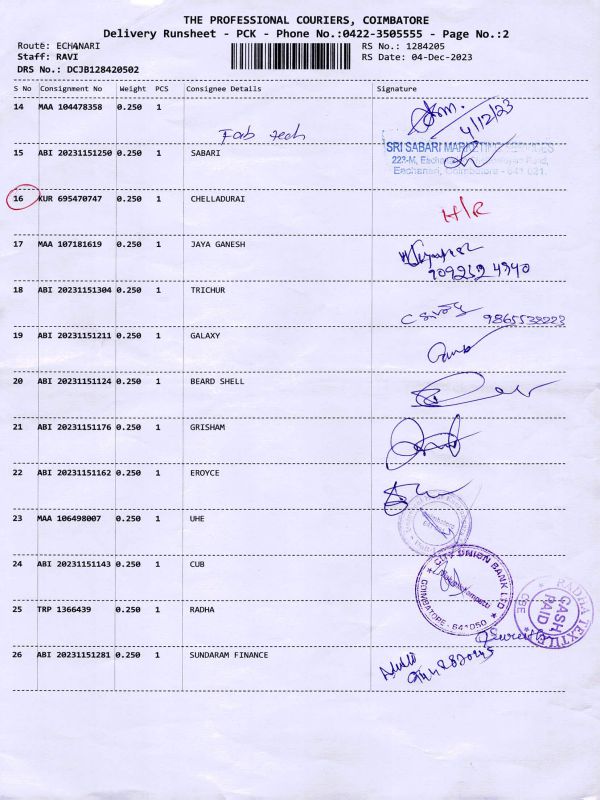 THE PROFESSIONAL COURIERS, COIMBATORE
Delivery Runsheet - PCK - Phone No.:0422-3505555 - Page No.:2
Route: ECHANARI
Staff: RAVI
DRS No.: DCJB128420502
RS No.: 1284205
RS Date: 04-Dec-2023
S No Consignment No Weight PCS Consignee Details Signature
14 MAA 104478358 0.250 1
Fab tech
4/12/23
15 ABI 20231151250 0.250 1 SABARI
SRI SABARI MARKETING SERVICES
Coimbatore - 641 021.
16 KUR 695470747 0.250 1 CHELLADURAI
H/R
17 MAA 107181619 0.250 1 JAYA GANESH
18 ABI 20231151304 0.250 1 TRICHUR
19 ABI 20231151211 0.250 1 GALAXY
20 ABI 20231151124 0.250 1 BEARD SHELL
21 ABI 20231151176 0.250 1 GRISHAM
22 ABI 20231151162 0.250 1 EROYCE
23 MAA 106498007 0.250 1 UHE
24 ABI 20231151143 0.250 1 CUB
CITY UNION BANK LTD
COIMBATORE - 641050
25 TRP 1366439 0.250 1 RADHA
RADHA TEXTILE
CASH
PAID
CBE
26 ABI 20231151281 0.250 1 SUNDARAM FINANCE